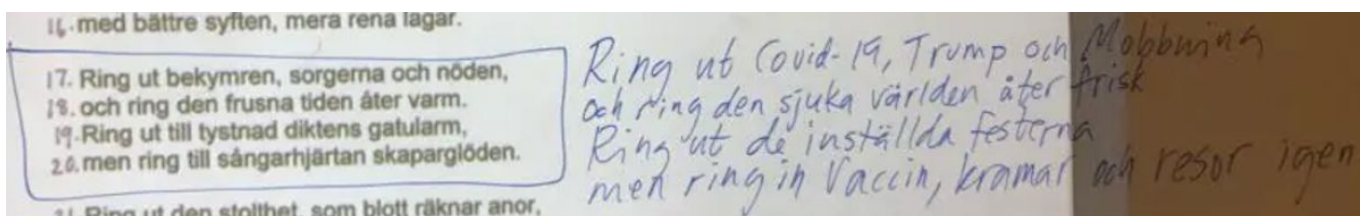 16. med bättre syften, mera rena lagar.
17. Ring ut bekymren, sorgerna och nöden,
18. och ring den frusna tiden åter varm.
19. Ring ut till tystnad diktens gatularm,
20. men ring till sångarhjärtan skaparglöden.
21. Ring ut den stolthet, som blott räknar anor,
Ring ut Covid-19, Trump och Mobbning
och ring den sjuka världen åter frisk
Ring ut de inställda festerna
men ring in Vaccin, kramar och resor igen